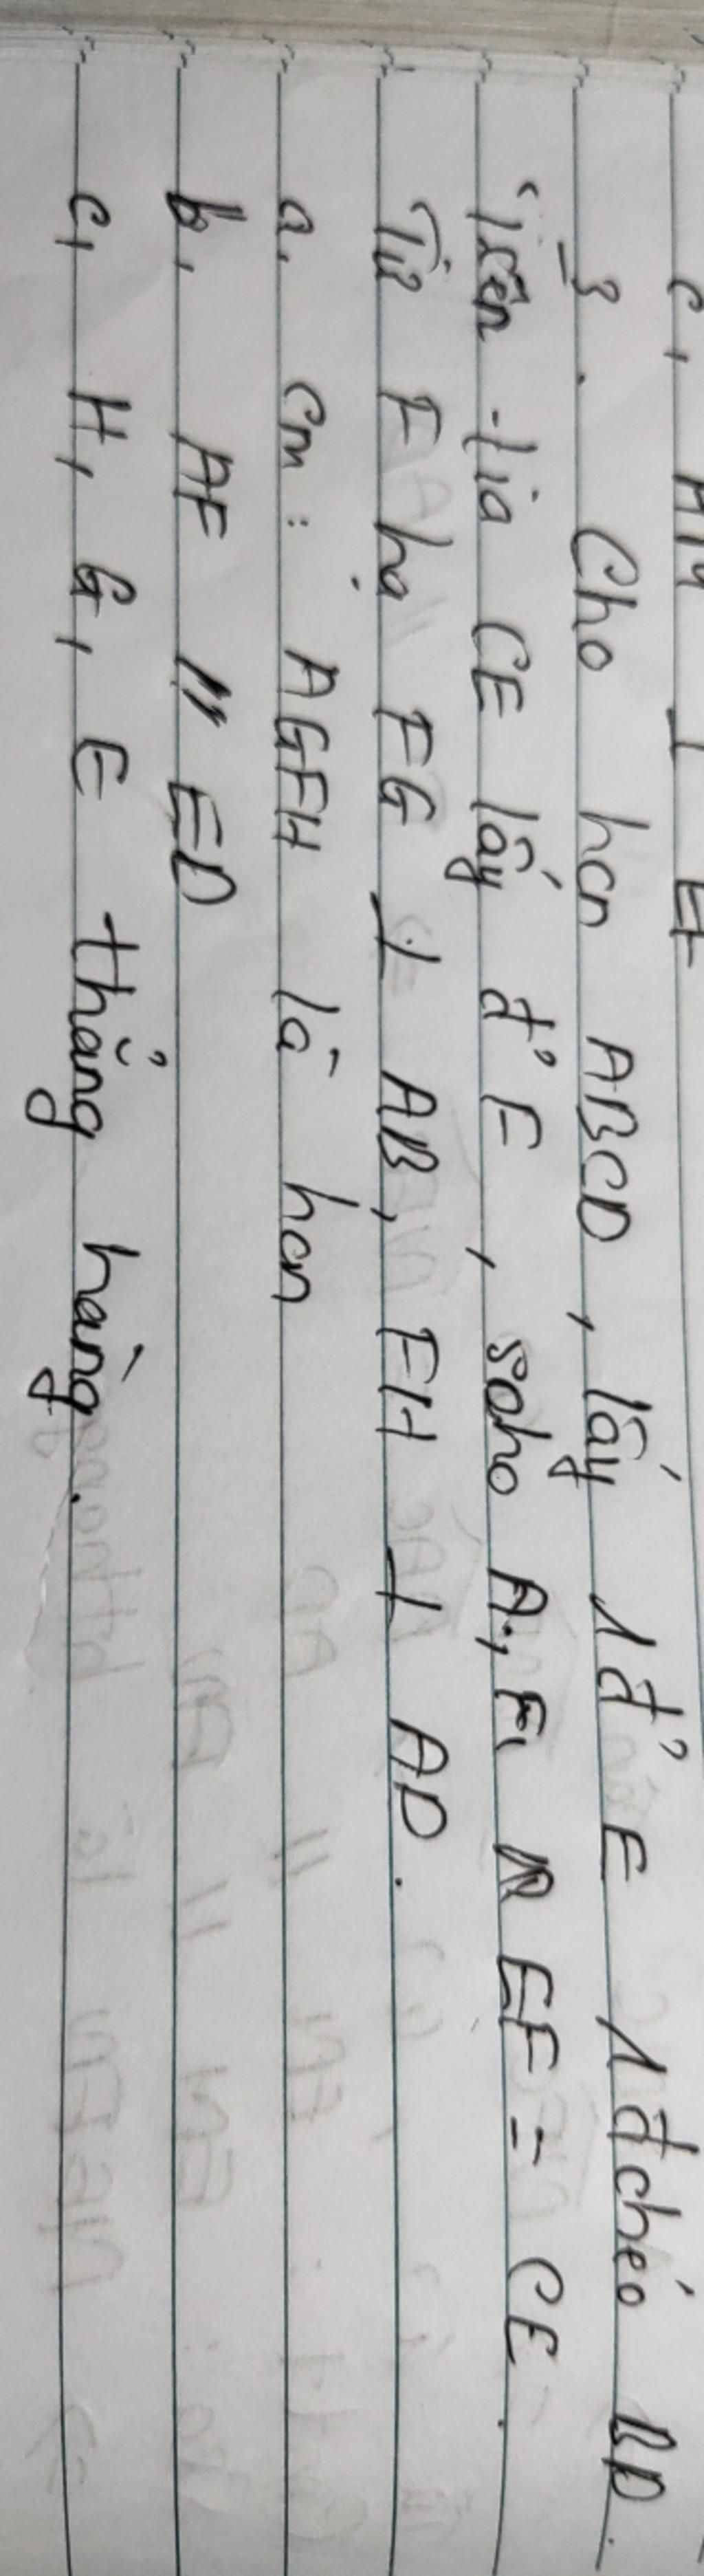 c, AM ⊥ EF
3. Cho hcn ABCD, lấy 1 đ' E 1 đchéo BD.
Trên tia CE lấy đ' F, scho A, F, EF = CE.
Từ F hạ FG ⊥ AB, FH ⊥ AD.
a, Cm: AGFH là hcn
b, AF // ED
c, H, G, E thẳng hàng.